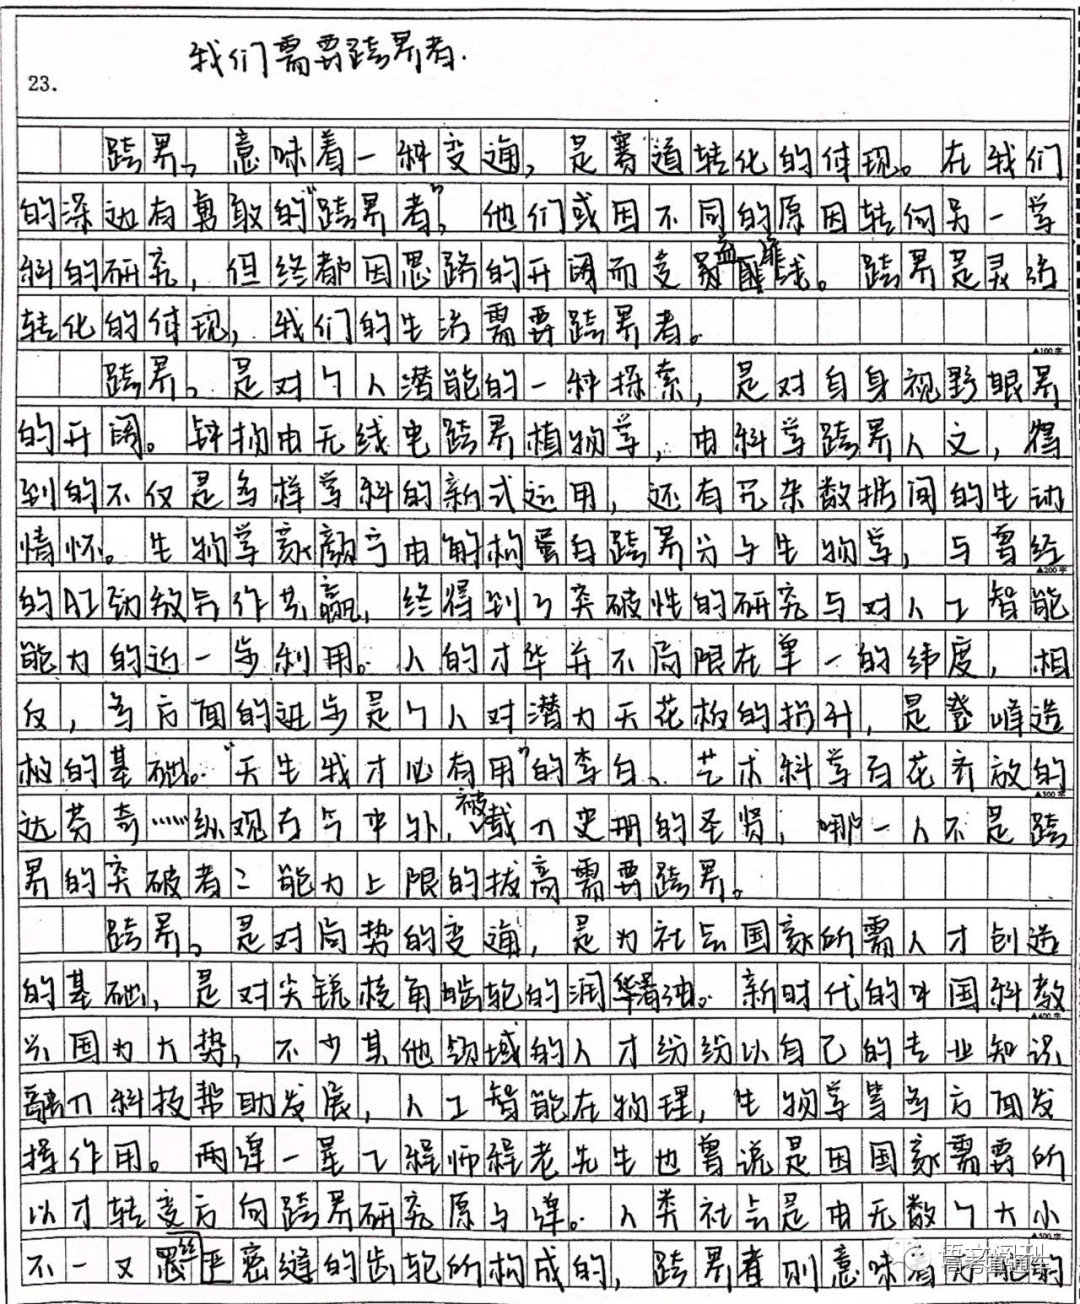 我们需要跨界者.
23.
跨界,意味着一种变通,是赛道转化的体现。在我们
的深边有勇敢的“跨界者”,他们或因不同的原因转向另一学
科的研究,但终都因思路的开阔而变益。跨界是灵活
转化的体现,我们的生活需要跨界者。
▲100字
跨界,是对个人潜能的一种探索,是对自身视野眼界
的开阔。钟扬由无线电跨界植物学,由科学跨界人文,得
到的不仅是多样学科的新式运用,还有冗杂数据间的生动
情怀。生物学家颜宁由结构蛋白跨界分子生物学,与曾经
▲200字
的AI劲敌合作共赢,终得到了突破性的研究与对人工智能
能力的近一步利用。人的才华并不局限在单一的纬度,相
反,多方面的进步是个人对潜力天花板的拐升,是登峰造
极的基础。“天生我才必有用”的李白、艺术科学百花齐放的
▲300字
达芬奇……纵观古今中外,被载入史册的圣贤,哪一人不是跨
界的突破者?能力上限的拔高需要跨界。
跨界,是对局势的变通,是为社会国家所需人才创造
的基础,是对尖锐棱角齿轮的润滑油。新时代的中国科教
▲400字
兴国为大势,不少其他领域的人才纷纷以自己的专业知识
融入科技帮助发展,人工智能在物理,生物学等多方面发
挥作用。两弹一星工程师程老先生也曾说是因国家需要所
以才转变方向跨界研究原子弹。人类社会是由无数个大小
▲500字
不一又丝严密缝的齿轮所构成的,跨界者则意味着为能的